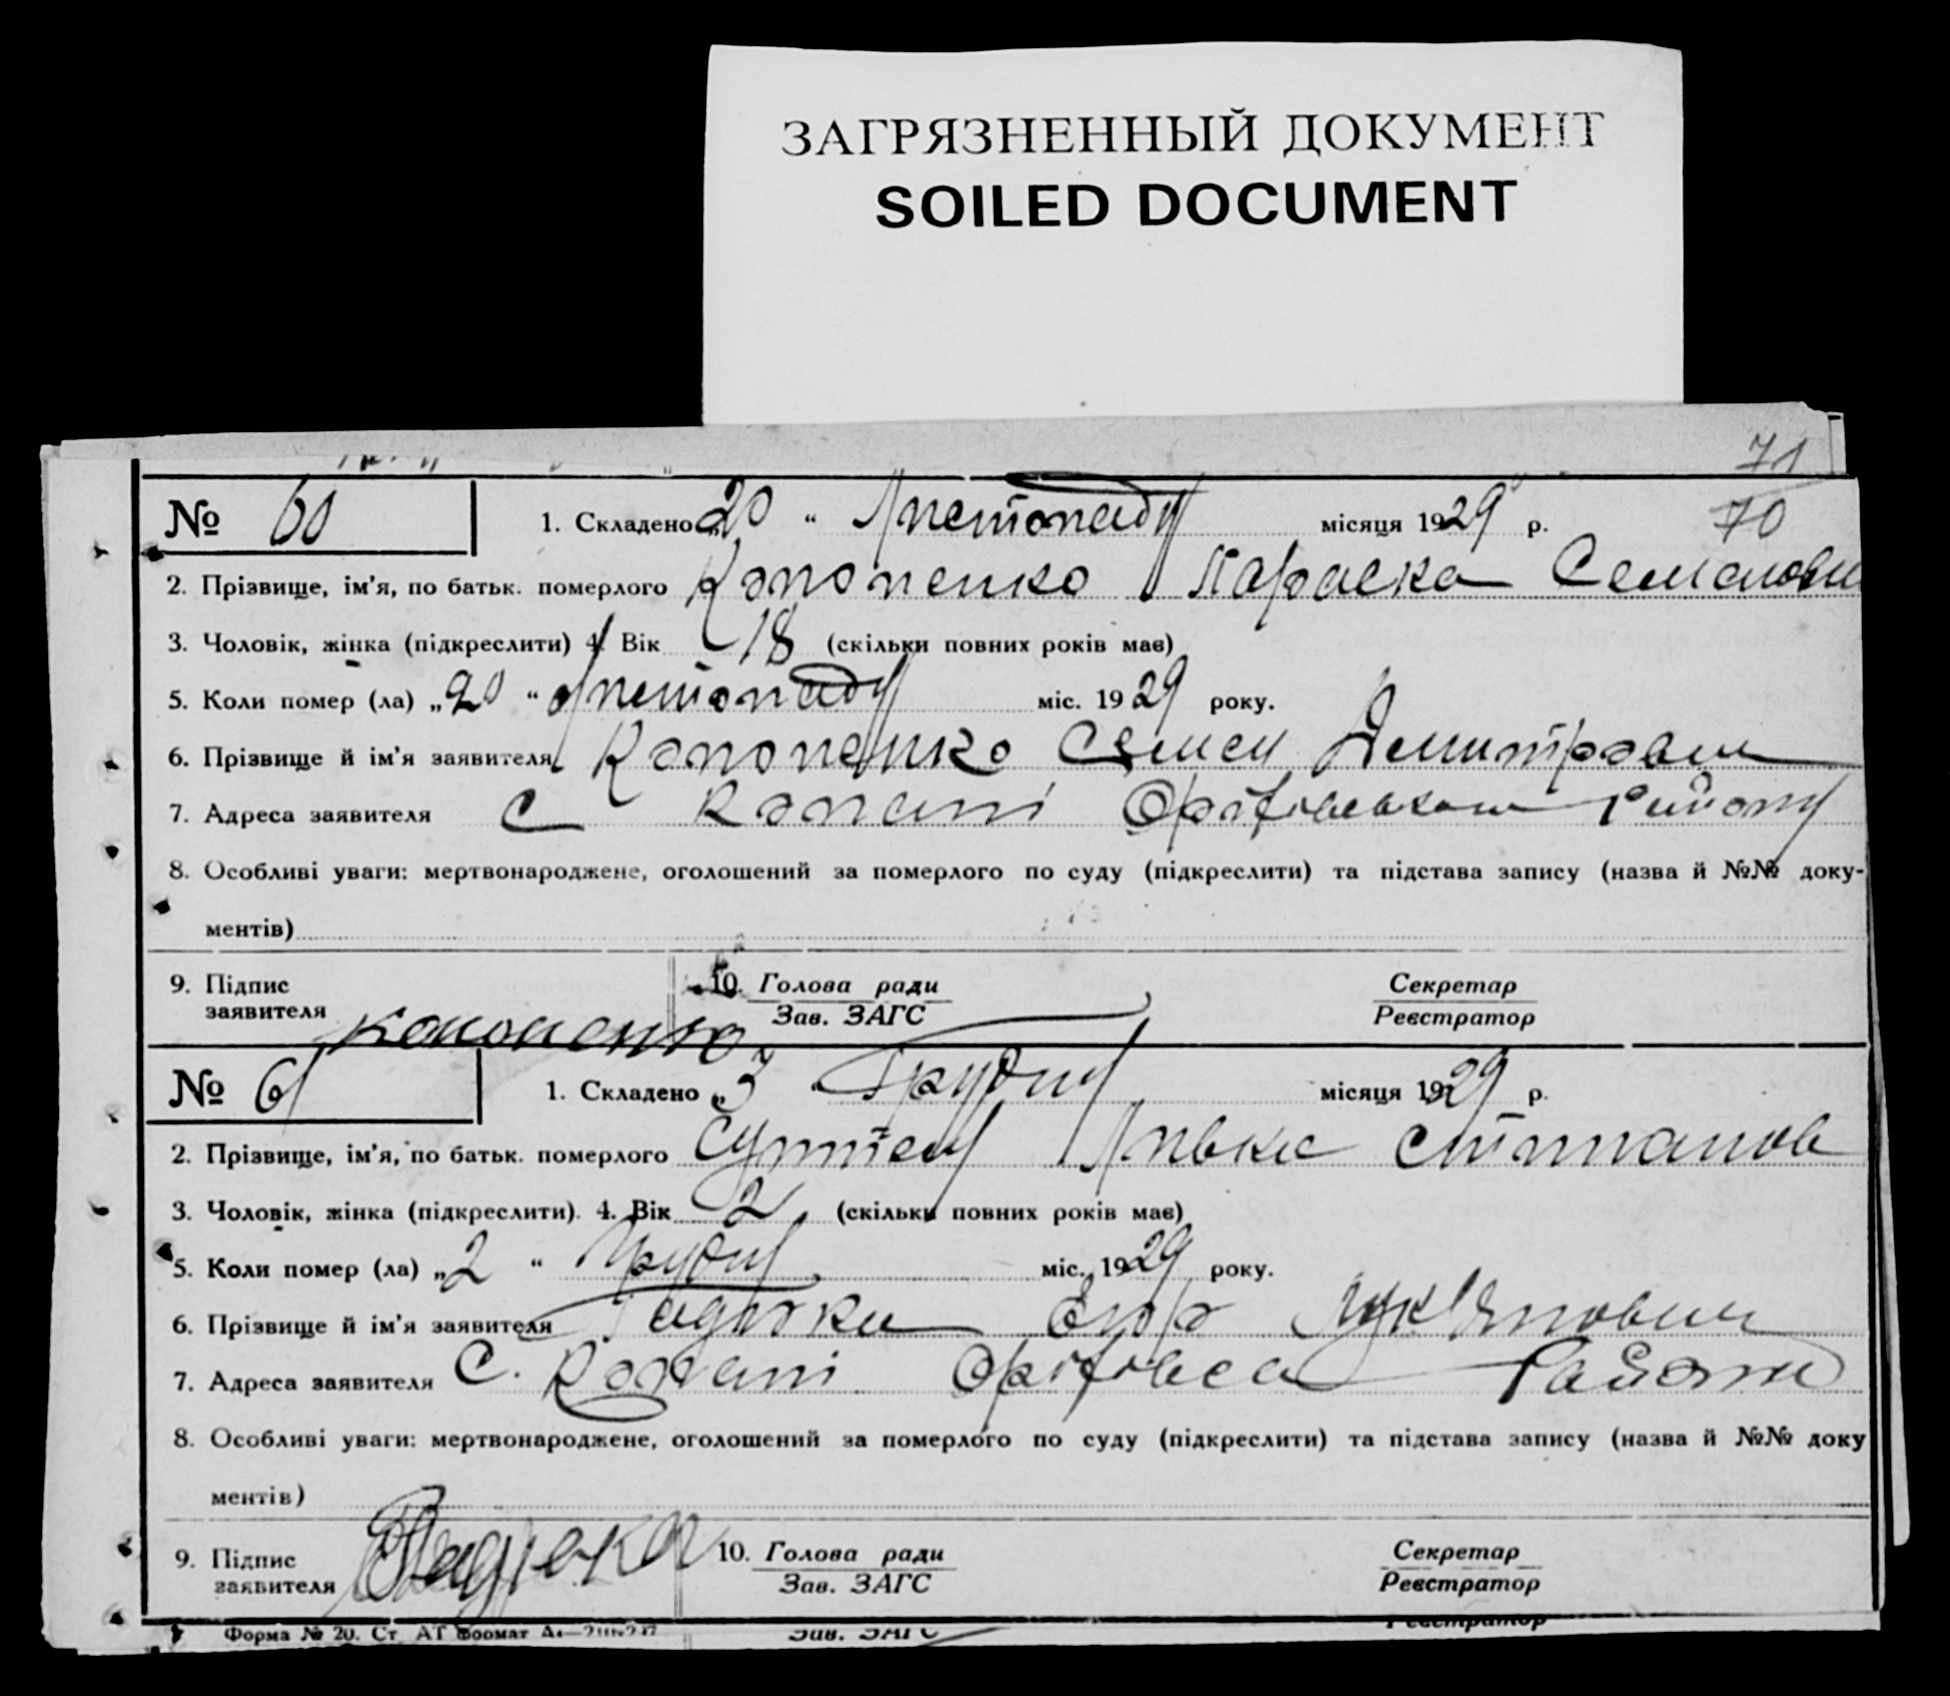 ЗАГРЯЗНЕННЫЙ ДОКУМЕНТ
SOILED DOCUMENT
71
№ 60 1. Складено „20 “ Листопаду місяця 1929 р. 70
2. Прізвище, ім'я, по батьк. померлого Кононенко Параска Семенови
3. Чоловік, жінка (підкреслити) 4. Вік 18 (скільки повних років має)
5. Коли помер (ла) „20 “ Листопаду міс. 1929 року.
6. Прізвище й ім'я заявителя Кононенко Семен Демитрович
7. Адреса заявителя С Копані Оріхівського Району
8. Особливі уваги: мертвонароджене, оголошений за померлого по суду (підкреслити) та підстава запису (назва й №№ доку-
ментів)
9. Підпис 10. Голова ради Секретар
заявителя Зав. ЗАГС Реєстратор
Кононенко
№ 61 1. Складено „3 “ Грудну місяця 1929 р.
2. Прізвище, ім'я, по батьк. померлого
3. Чоловік, жінка (підкреслити). 4. Вік 2 (скільки повних років має)
5. Коли помер (ла) „2 “ Грудну міс. 1929 року.
6. Прізвище й ім'я заявителя Лук'янович
7. Адреса заявителя С. Копані
8. Особливі уваги: мертвонароджене, оголошений за померлого по суду (підкреслити) та підстава запису (назва й №№ доку
ментів)
9. Підпис 10. Голова ради Секретар
заявителя Зав. ЗАГС Реєстратор
Форма № 20. Ст Зав. ЗАГС Реєстратор